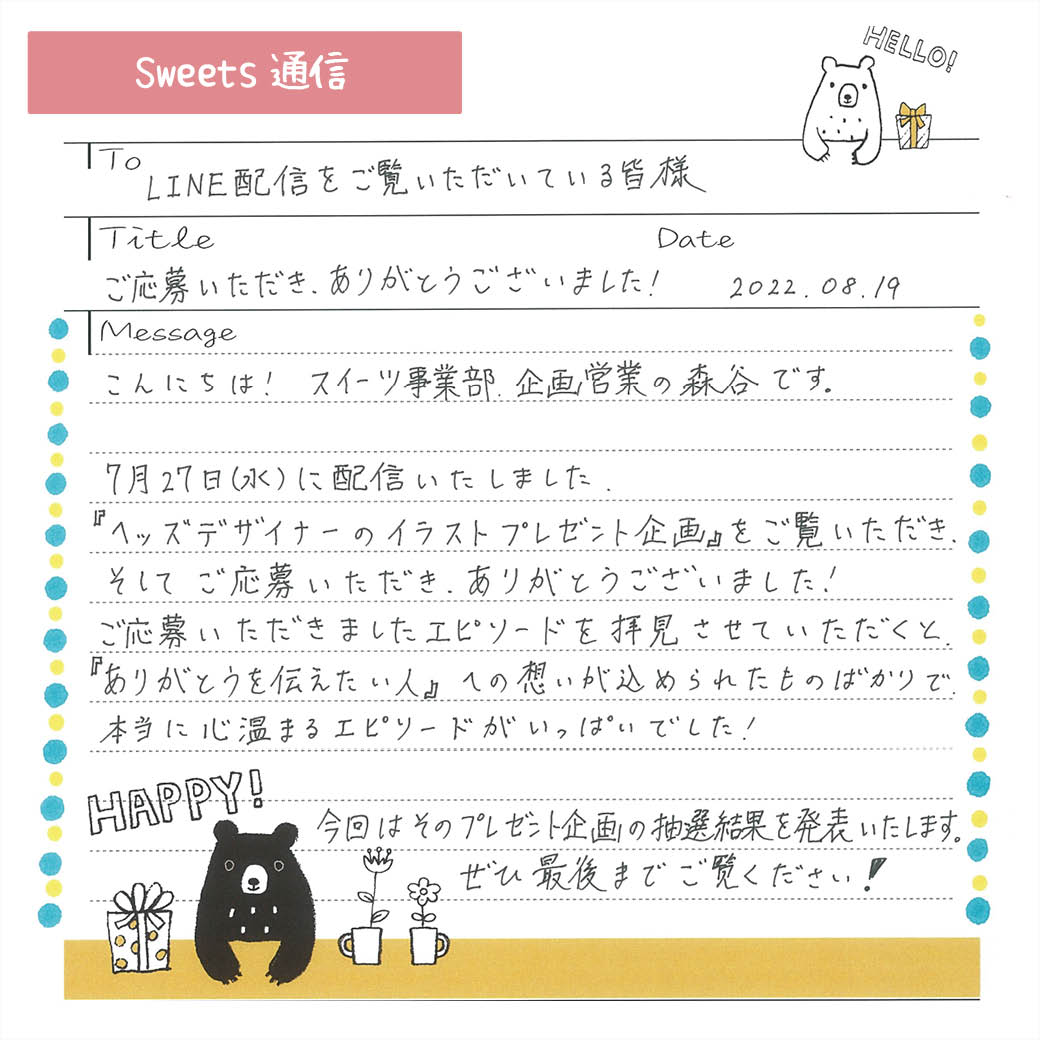 Sweets 通信
HELLO!
To
LINE配信をご覧いただいている皆様
Title Date
ご応募いただき、ありがとうございました! 2022.08.19
Message
こんにちは! スイーツ事業部、企画営業の森谷です。
7月27日(水)に配信いたしました、
『ヘッズデザイナーのイラストプレゼント企画』をご覧いただき、
そしてご応募いただき、ありがとうございました!
ご応募いただきましたエピソードを拝見させていただくと、
『ありがとうを伝えたい人』への想いが込められたものばかりで、
本当に心温まるエピソードがいっぱいでした!
HAPPY!
今回はそのプレゼント企画の抽選結果を発表いたします。
ぜひ最後までご覧ください!